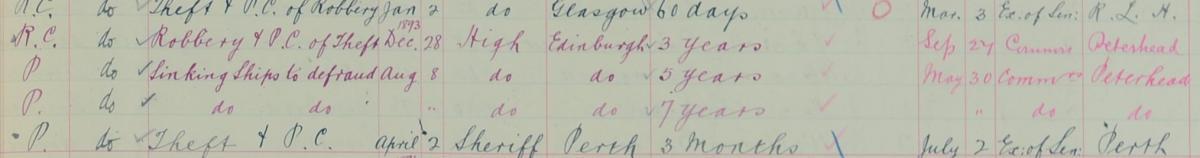 R.C. do Theft & P.C. of Robbery Jan 2 do Glasgow 60 days Mar. 3 Ex. of Sen: R. L. H.
R.C. do Robbery & P.C. of Theft 1893 Dec. 28 High Edinburgh 3 years Sep 27 Peterhead
P do Sinking Ships to defraud Aug 8 do do 5 years May 30 Peterhead
P. do do do " do do 7 years " do do
P. do Theft & P.C. April 2 Sheriff Perth 3 Months July 2 Ex: of Sen: Perth